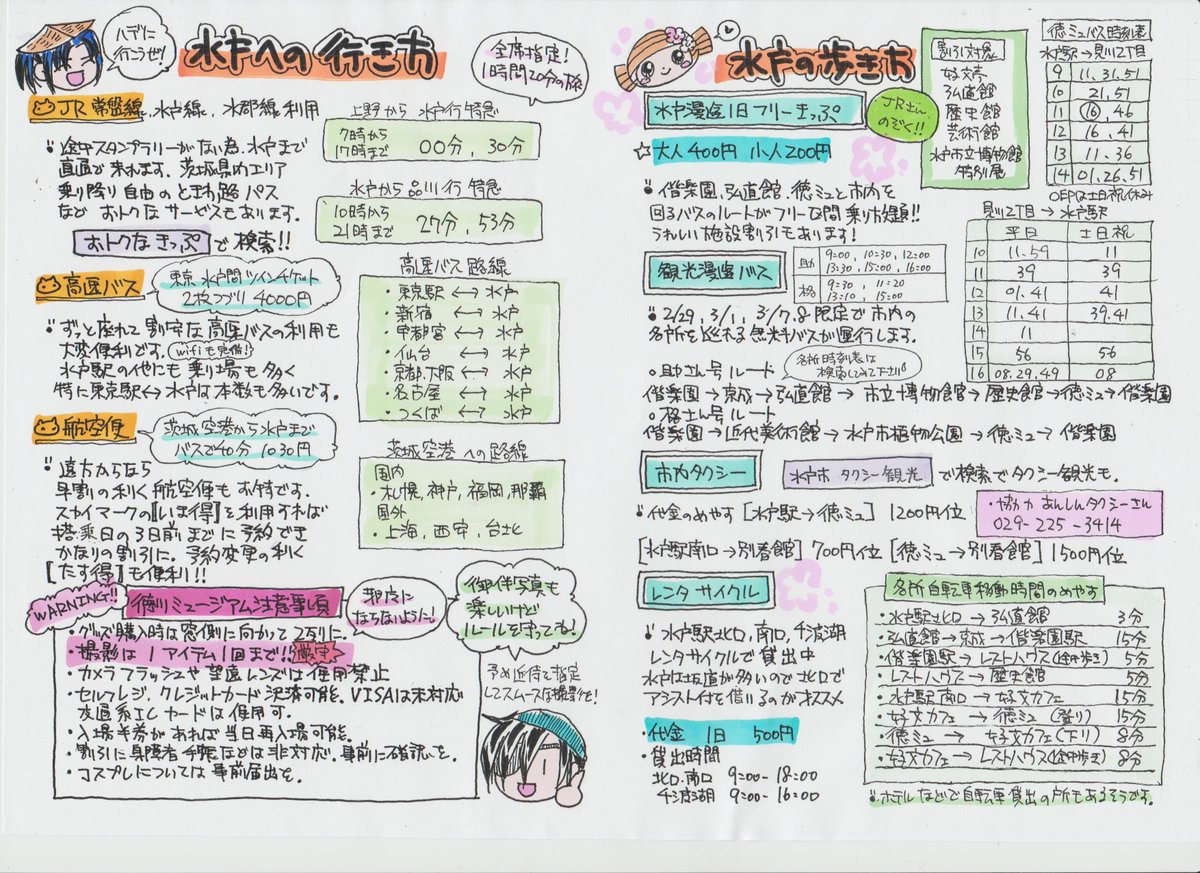 ハデに
行こうぜ!
水戸への行き方
全席指定!
1時間20分の旅
JR常盤線、水戸線、水郡線利用
・途中スタンプラリーがない為、水戸まで
直直が来れます。茨城県内エリア
乗り降り自由のときわ路パス
など おトクなサービスもあります。
おトクなきっぷ で検索!!
上野から 水戸行特急
7時から
17時まで 00分, 30分
水戸から品川行特急
10時から
21時まで 27分, 53分
高速バス
東京 水戸間ツインチケット
2枚つづり 4000円
・ずっと座れて割安な高速バスの利用も
大変便利です。wifiも完備!
水戸駅の他にも乗り場も多く
特に東京駅↔水戸は本数も多いです。
高速バス路線
・東京駅 ↔ 水戸
・新宿 ↔ 水戸
・宇都宮 ↔ 水戸
・仙台 ↔ 水戸
・京都、大阪 ↔ 水戸
・名古屋 ↔ 水戸
・つくば ↔ 水戸
航空便
茨城空港から水戸まで
バスで40分 1030円
・遠方からなら
早割の利く航空便もお特です。
スカイマークの[いま得]を利用すれば
搭乗日の3日前までに予約でき
かなりの割引に。予約変更の利く
[たす得]も便利!!
茨城空港への路線
国内
・札幌, 神戸, 福岡, 那覇
国外
・上海, 西安, 台北
WARNING!!
徳川ミュージアム注意事項
邪皮に
ならないように!
・グッズ購入時は窓側に向かって2列に。
・撮影は1アイテム1回まで!!厳守
・カメラフラッシュや望遠レンズは使用禁止
・セルフレジ、クレジットカード決済可能。VISAは未対応
交通系ICカードは使用可。
・入場半券があれば当日再入場可能。
・割引に障害者手帳などは非対応。事前に確認を。
・コスプレについては事前届出を。
御伴写真も
楽しいけど
ルールを守っても!
予め近侍を指定
してスムースな撮影を!
水戸の歩き方
水戸漫遊1日フリーきっぷ
JRさん
のぞく!!
☆大人400円 小人200円
・偕楽園、弘道館、徳ミュと市内を
回るバスのルートがフリーな間乗り放題!!
うれしい施設割引もあります!
割引対象
好文亭
弘道館
歴史館
芸術館
水戸市立博物館
特別展
徳ミュバス時刻表
水戸駅→見川2丁目
9 11, 31, 51
10 21, 51
11 ⑯, 46
12 16, 41
13 11, 36
14 01, 26, 51
○印は土日祝休み
見川2丁目→水戸駅
平日 土日祝
10 11, 59 11
11 39 39
12 01, 41 41
13 11, 41 39, 41
14 11
15 56 56
16 08, 29, 49 08
観光漫遊バス
助 9:00, 10:30, 12:00
13:30, 15:00, 16:00
格 9:30, 11:20
13:10, 15:00
・2/29, 3/1, 3/7.8限定で市内の
名所を巡れる無料バスが運行します。
各所時刻表は
検索してみて下さい。
○助さん号ルート
偕楽園→京成→弘道館→市立博物館→歴史館→徳ミュ→偕楽園
○格さん号ルート
偕楽園→近代美術館→水戸市植物公園→徳ミュ→偕楽園
市内タクシー
水戸市 タクシー観光 で検索でタクシー観光も。
・代金のめやす[水戸駅→徳ミュ]1200円位
・協力 あんしんタクシーさん
029-225-3414
[水戸駅南口→別春館]700円位[徳ミュ→別春館]1500円位
レンタサイクル
・水戸駅北口、南口、千波湖
レンタサイクルで貸出中
水戸は坂道が多いので北口で
アシスト付を借りるのがオススメ
・代金 1日 500円
・貸出時間
北口、南口 9:00-18:00
千波湖 9:00-16:00
各所自転車移動時間のめやす
・水戸駅北口→弘道館 3分
・弘道館→京成→偕楽園駅 15分
・偕楽園駅→レストハウス(途中歩き) 5分
・レストハウス→歴史館 5分
・水戸駅南口→好文カフェ 15分
・好文カフェ→徳ミュ(登り) 15分
・徳ミュ→好文カフェ(下り) 8分
・好文カフェ→レストハウス(途中歩き) 8分
・ホテルなどで自転車貸出の所もあるそうです。